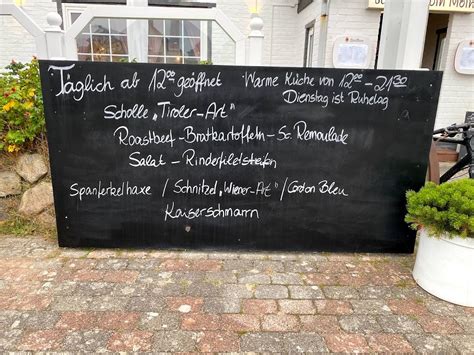 Täglich ab 12⁰⁰ geöffnet
Warme Küche von 12⁰⁰-21³⁰
Dienstag ist Ruhetag
Scholle „Tiroler-Art"
Roastbeef-Bratkartoffeln-Sc. Remoulade
Salat - Rinderfiletstreifen
Spanferkelhaxe / Schnitzel „Wiener-Art" / Cordon Bleu
Kaiserschmarrn